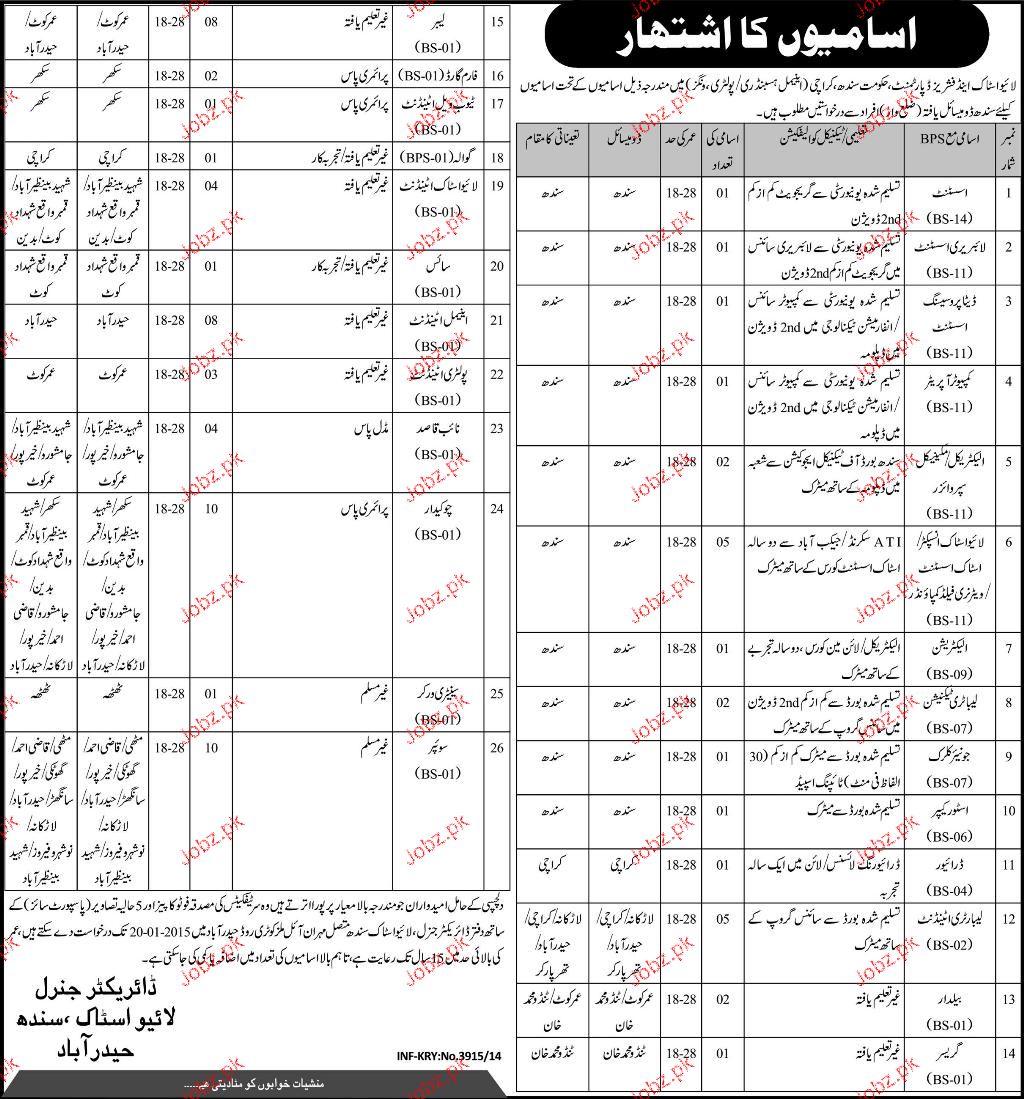 اسامیوں کا اشتہار
لائیواسٹاک اینڈ فشریز ڈپارٹمنٹ، حکومت سندھ، کراچی (اینیمل ہسبنڈری/پولٹری ونگز) میں مندرجہ ذیل اسامیوں کے تحت اسامیوں
کیلئے سندھ ڈومیسائل یافتہ (ضلع وار) افراد سے درخواستیں مطلوب ہیں۔
نمبر شمار | اسامی مع BPS | تعلیمی/ٹیکنیکل کوالیفکیشن | اسامی کی تعداد | عمر کی حد | ڈومیسائل | تعیناتی کا مقام
1 | اسسٹنٹ (BS-14) | تسلیم شدہ یونیورسٹی سے گریجویٹ کم از کم 2nd ڈویژن | 01 | 18-28 | سندھ | سندھ
2 | لائبریری اسسٹنٹ (BS-11) | تسلیم شدہ یونیورسٹی سے لائبریری سائنس میں گریجویٹ کم از کم 2nd ڈویژن | 01 | 18-28 | سندھ | سندھ
3 | ڈیٹا پروسیسنگ اسسٹنٹ (BS-11) | تسلیم شدہ یونیورسٹی سے کمپیوٹر سائنس /انفارمیشن ٹیکنالوجی میں 2nd ڈویژن میں ڈپلومہ | 01 | 18-28 | سندھ | سندھ
4 | کمپیوٹر آپریٹر (BS-11) | تسلیم شدہ یونیورسٹی سے کمپیوٹر سائنس /انفارمیشن ٹیکنالوجی میں 2nd ڈویژن میں ڈپلومہ | 01 | 18-28 | سندھ | سندھ
5 | الیکٹریکل/مکینیکل سپروائزر (BS-11) | سندھ بورڈ آف ٹیکنیکل ایجوکیشن سے شعبہ میں ڈپلومہ کے ساتھ میٹرک | 02 | 18-28 | سندھ | سندھ
6 | لائیواسٹاک انسپکٹر/ اسٹاک اسسٹنٹ /ویٹرنری فیلڈ کمپاؤنڈر (BS-11) | ATI سکرنڈ/جیکب آباد سے دو سالہ اسٹاک اسسٹنٹ کورس کے ساتھ میٹرک | 05 | 18-28 | سندھ | سندھ
7 | الیکٹریشن (BS-09) | الیکٹریکل/لائن مین کورس، دو سالہ تجربے کے ساتھ میٹرک | 01 | 18-28 | سندھ | سندھ
8 | لیبارٹری ٹیکنیشن (BS-07) | تسلیم شدہ بورڈ سے کم از کم 2nd ڈویژن میں سائنس گروپ کے ساتھ میٹرک | 02 | 18-28 | سندھ | سندھ
9 | جونیئر کلرک (BS-07) | تسلیم شدہ بورڈ سے میٹرک کم از کم (30 الفاظ فی منٹ) ٹائپنگ اسپیڈ | 01 | 18-28 | سندھ | سندھ
10 | اسٹور کیپر (BS-06) | تسلیم شدہ بورڈ سے میٹرک | 01 | 18-28 | سندھ | سندھ
11 | ڈرائیور (BS-04) | ڈرائیورنگ لائسنس/لائن میں ایک سالہ تجربہ | 01 | 18-28 | کراچی | کراچی
12 | لیبارٹری اٹینڈنٹ (BS-02) | تسلیم شدہ بورڈ سے سائنس گروپ کے ساتھ میٹرک | 05 | 18-28 | لاڑکانہ/کراچی/ حیدرآباد/ تھرپارکر | لاڑکانہ/کراچی/ حیدرآباد/ تھرپارکر
13 | بیلدار (BS-01) | غیر تعلیم یافتہ | 02 | 18-28 | عمرکوٹ/ٹنڈو محمد خان | عمرکوٹ/ٹنڈو محمد خان
14 | گریسر (BS-01) | غیر تعلیم یافتہ | 01 | 18-28 | ٹنڈو محمد خان | ٹنڈو محمد خان
15 | لیبر (BS-01) | غیر تعلیم یافتہ | 08 | 18-28 | عمرکوٹ/ حیدرآباد | عمرکوٹ/ حیدرآباد
16 | فارم گارڈ (BS-01) | پرائمری پاس | 02 | 18-28 | سکھر | سکھر
17 | ٹیوب ویل اٹینڈنٹ (BS-01) | پرائمری پاس | 01 | 18-28 | سکھر | سکھر
18 | گوالہ (BPS-01) | غیر تعلیم یافتہ/تجربہ کار | 01 | 18-28 | کراچی | کراچی
19 | لائیواسٹاک اٹینڈنٹ (BS-01) | غیر تعلیم یافتہ | 04 | 18-28 | شہید بینظیر آباد/ قمبر واقع شہداد کوٹ/بدین | شہید بینظیر آباد/ قمبر واقع شہداد کوٹ/بدین
20 | سائس (BS-01) | غیر تعلیم یافتہ/تجربہ کار | 01 | 18-28 | قمبر واقع شہداد کوٹ | قمبر واقع شہداد کوٹ
21 | اینیمل اٹینڈنٹ (BS-01) | غیر تعلیم یافتہ | 08 | 18-28 | حیدرآباد | حیدرآباد
22 | پولٹری اٹینڈنٹ (BS-01) | غیر تعلیم یافتہ | 03 | 18-28 | عمرکوٹ | عمرکوٹ
23 | نائب قاصد (BS-01) | مڈل پاس | 04 | 18-28 | شہید بینظیر آباد/ جامشورو/خیرپور/ عمرکوٹ | شہید بینظیر آباد/ جامشورو/خیرپور/ عمرکوٹ
24 | چوکیدار (BS-01) | پرائمری پاس | 10 | 18-28 | سکھر/شہید بینظیر آباد/قمبر واقع شہداد کوٹ/ بدین/ جامشورو/قاضی احمد/خیرپور/ لاڑکانہ/حیدرآباد | سکھر/شہید بینظیر آباد/قمبر واقع شہداد کوٹ/ بدین/ جامشورو/قاضی احمد/خیرپور/ لاڑکانہ/حیدرآباد
25 | سینیٹری ورکر (BS-01) | غیر مسلم | 01 | 18-28 | ٹھٹھہ | ٹھٹھہ
26 | سوئپر (BS-01) | غیر مسلم | 10 | 18-28 | مٹھی/قاضی احمد/ گھوٹکی/خیرپور/ سانگھڑ/حیدرآباد/ لاڑکانہ/ نوشہروفیروز/شہید بینظیر آباد | مٹھی/قاضی احمد/ گھوٹکی/خیرپور/ سانگھڑ/حیدرآباد/ لاڑکانہ/ نوشہروفیروز/شہید بینظیر آباد
دلچسپی کے حامل امیدواران جو مندرجہ بالا معیار پر پورا اترتے ہیں وہ سرٹیفکیٹس کی مصدقہ فوٹو کاپیز اور 5 حالیہ تصاویر (پاسپورٹ سائز) کے
ساتھ دفتر ڈائریکٹر جنرل، لائیواسٹاک سندھ متصل مہران آئل ملز کوٹری روڈ حیدرآباد میں 20-01-2015 تک درخواست دے سکتے ہیں، عمر
کی بالائی حد میں 15 سال تک رعایت ہے، تاہم بالا اسامیوں کی تعداد میں اضافہ یا کمی کی جاسکتی ہے۔
ڈائریکٹر جنرل
لائیو اسٹاک، سندھ
حیدرآباد
INF-KRY:No.3915/14
منشیات خوابوں کو منادیتی ہے.....
Jobz.pk